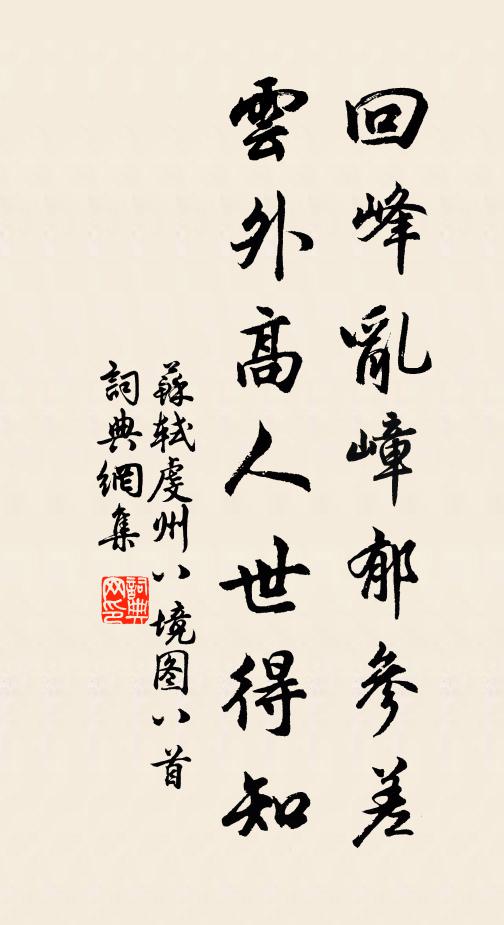 回峰亂嶂郁參差
雲外高人世得知
蘇軾虔州八境图八首
詞典網集
詞典网印